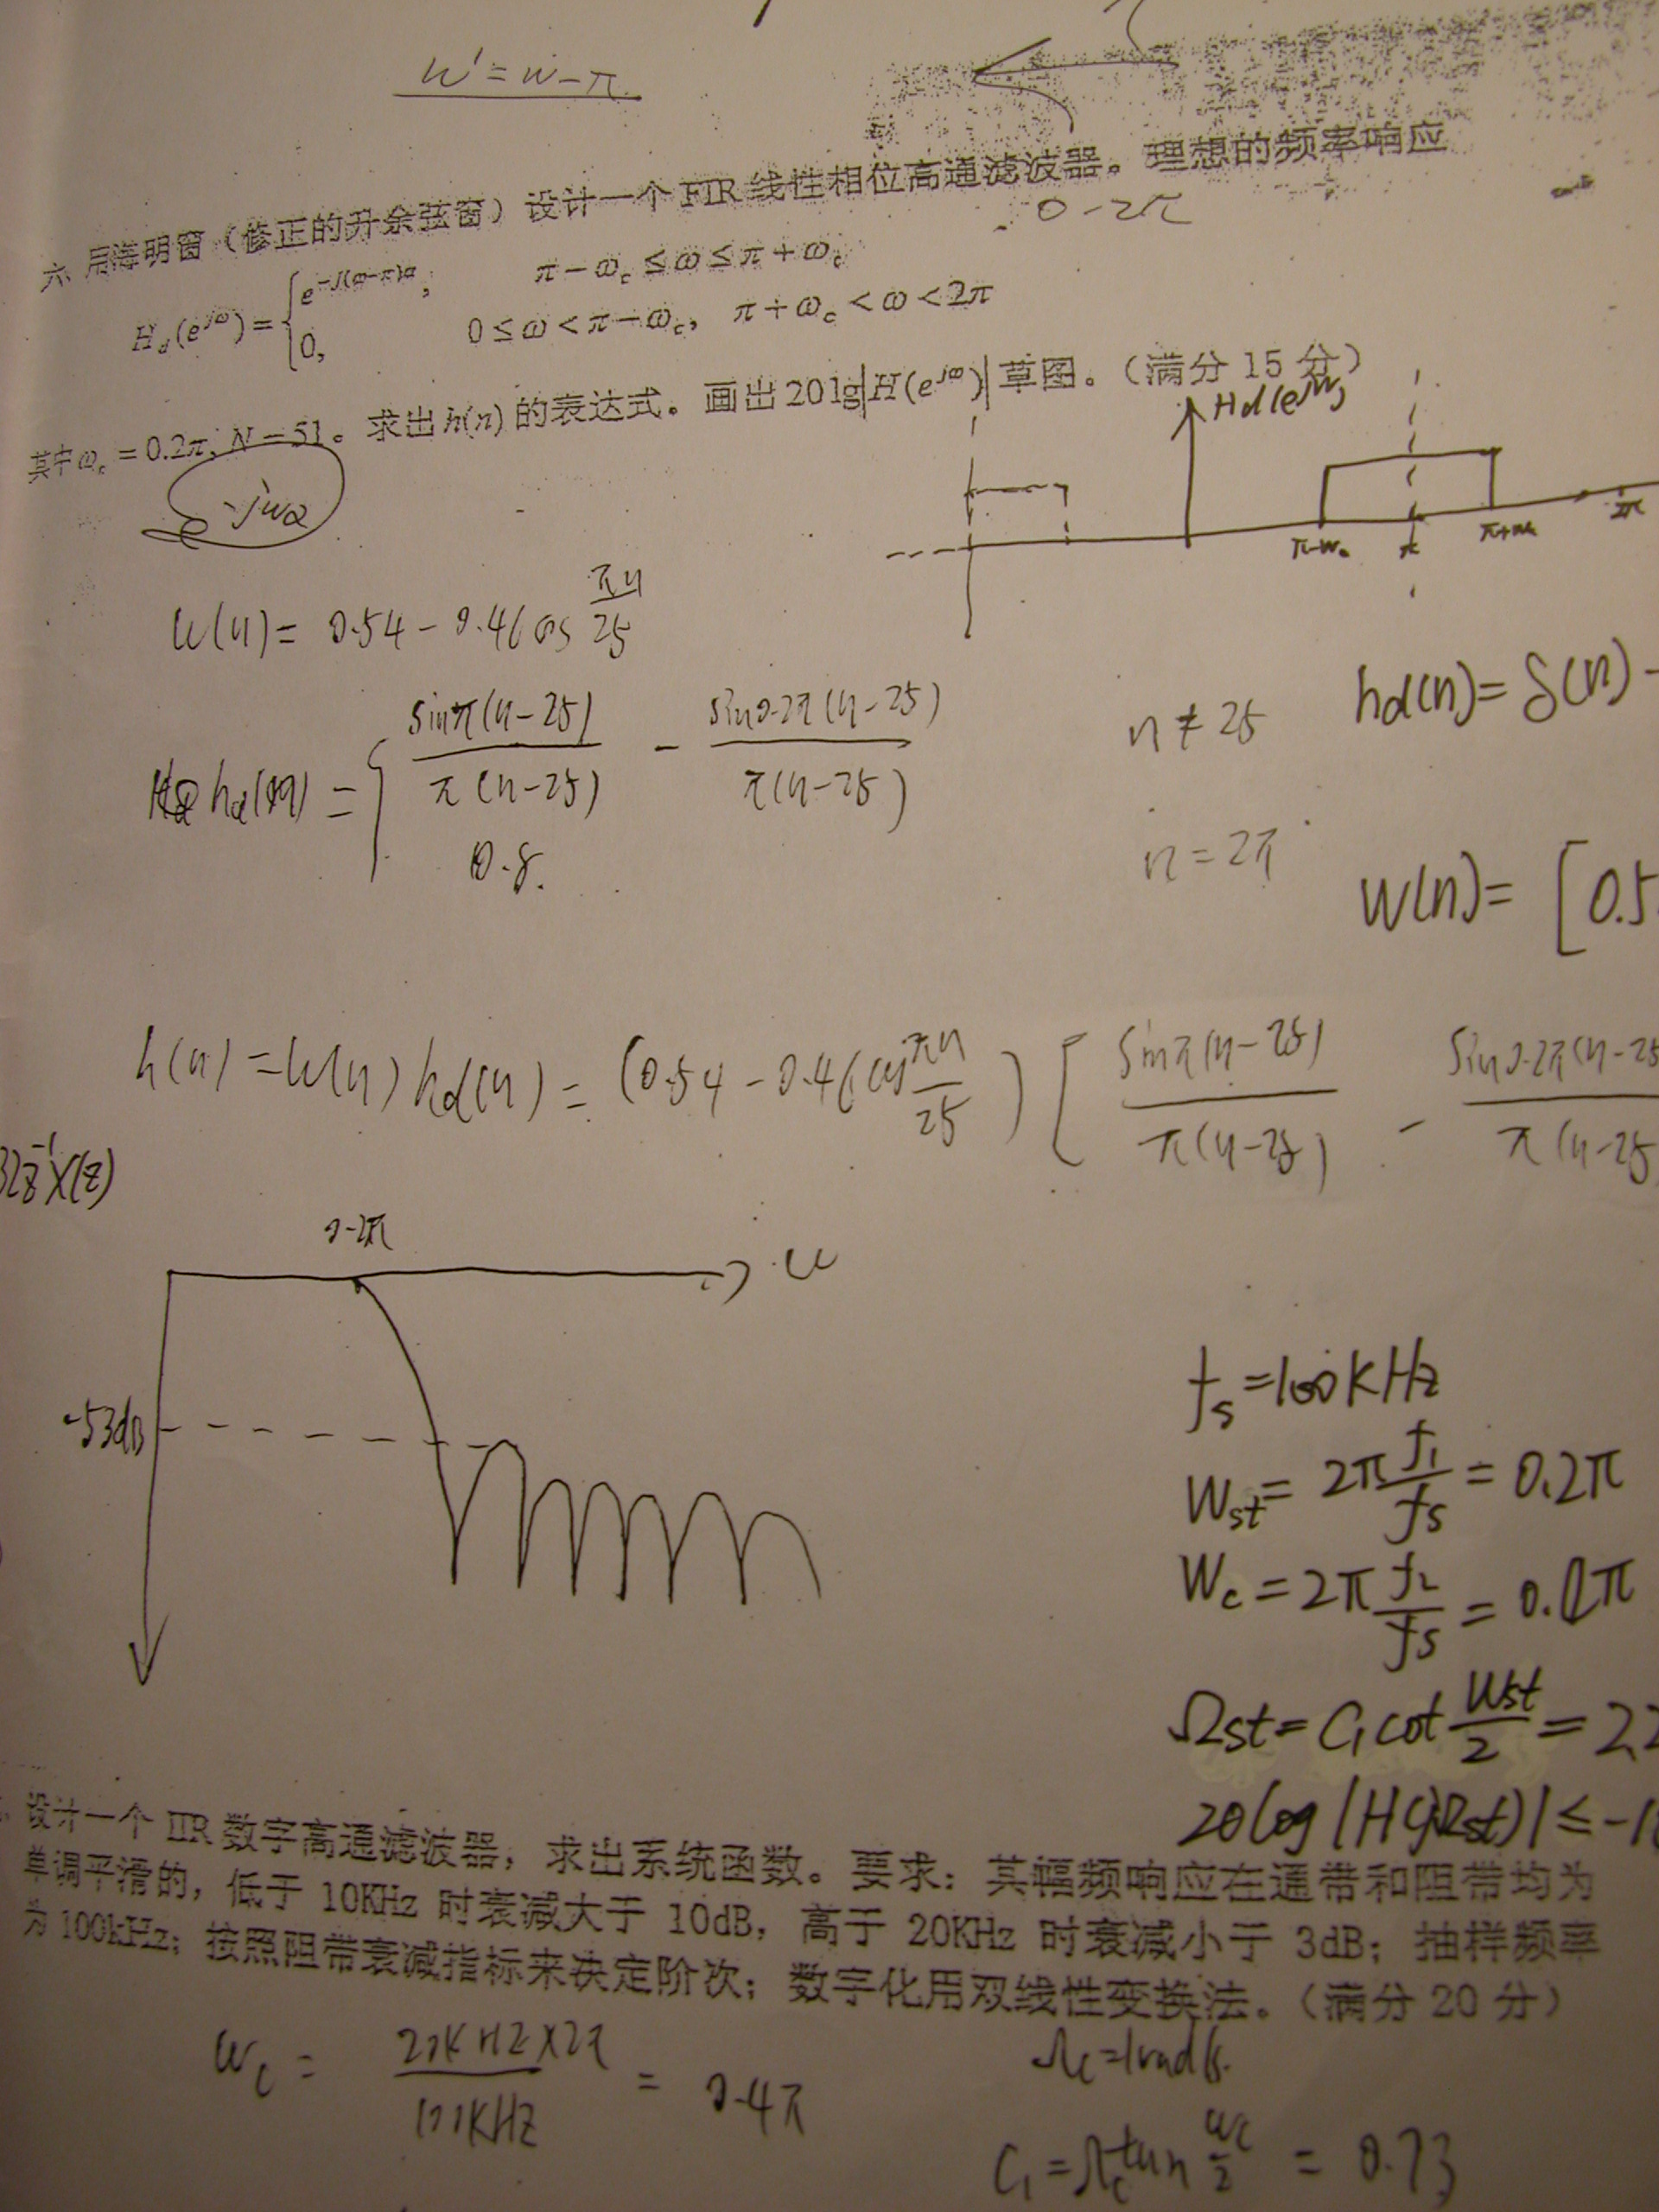 w' = w - π
六、用海明窗（修正的升余弦窗）设计一个 FIR 线性相位高通滤波器。理想的频率响应
0-2π
H_d(e^{jω}) = { e^{-j(ω-π)α}, π-ω_c ≤ ω ≤ π+ω_c
0, 0 ≤ ω < π-ω_c, π+ω_c < ω < 2π
其中 ω_c = 0.2π, N = 51。求出 h(n) 的表达式。画出 20lg|H(e^{jω})| 草图。（满分 15 分）
Hd(e^{jw})
e^{-jwα}
π-w_c π π+w_c 2π
w(n) = 0.54 - 0.46 cos πn/25
h_d(n) = { sinπ(n-25)/π(n-25) - sin0.2π(n-25)/π(n-25) n ≠ 25
0.8. n = 2π
hd(n) = δ(n) -
W(n) = [0.5
h(n) = w(n) h_d(n) = (0.54 - 0.46 cos πn/25) [ sinπ(n-25)/π(n-25) - sin0.2π(n-25/π(n-25
32z^{-1}X(z)
0.2π
w
-53dB
f_s = 100KHz
W_st = 2π f_1/f_s = 0.2π
W_c = 2π f_2/f_s = 0.
Ω_st = C_1 cot W_st/2 = 2.2
20log|H(jΩ_st)| ≤ -1
设计一个 IIR 数字高通滤波器，求出系统函数。要求：其幅频响应在通带和阻带均为
单调平滑的，低于 10KHz 时衰减大于 10dB，高于 20KHz 时衰减小于 3dB；抽样频率
为 100kHz；按照阻带衰减指标来决定阶次；数字化用双线性变换法。（满分 20 分）
w_c = 20KHZ×2π/100KHZ = 0.4π
Ω_c = 1rad/s.
C_1 = Ω_c tan w_c/2 = 0.73